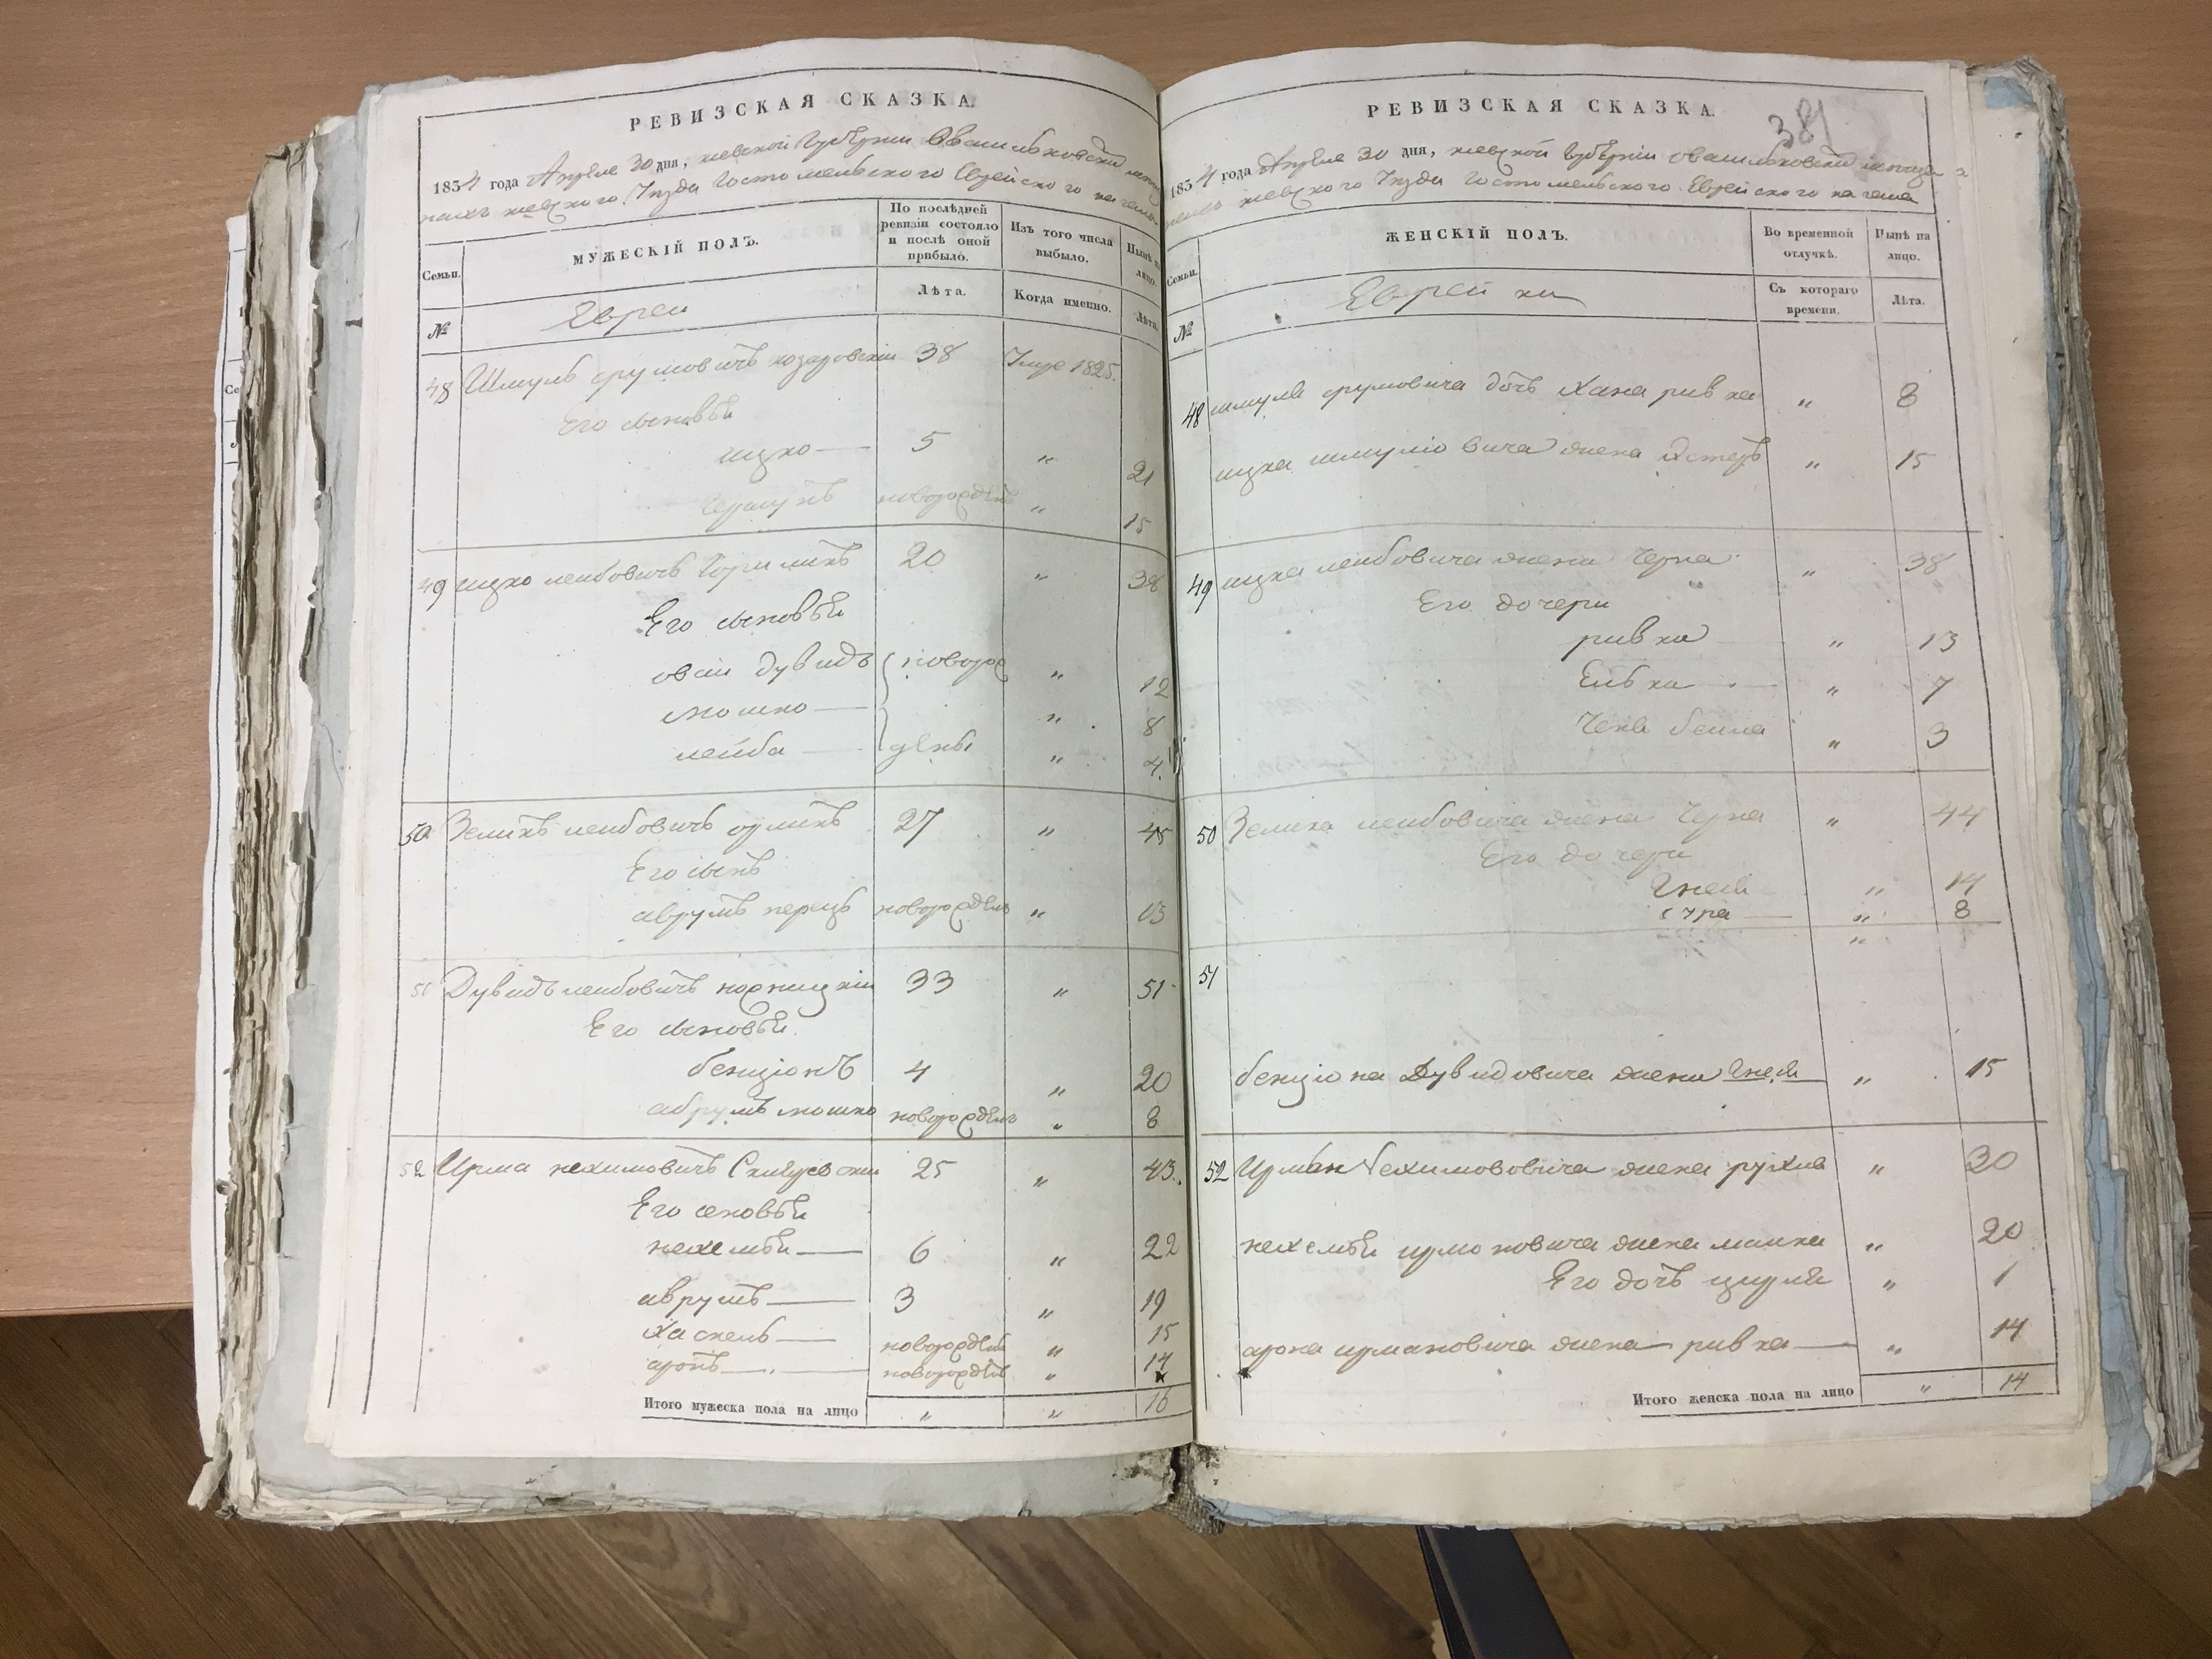 РЕВИЗСКАЯ СКАЗКА.
1834 года Апреля 30 дня, киевской Губернии
киевского Уезда Гостомельского Еврейского кагала
Семьи.
МУЖЕСКІЙ ПОЛЪ.
По послѣдней ревизіи состояло и послѣ оной прибыло.
Изъ того числа выбыло.
Нынѣ на лицо.
№
Евреи
Лѣта.
Когда именно.
Лѣта.
48 Шмуль срумовичъ козаровскіи 38 Умре 1825.
Его сыновьи
ицко 5 " 21
новорожденъ " 15
49 ицко леибовичъ 20 " 38
Его сыновьи
овси дувидъ новорож " 12
мошко " 8
лейба дены " 4
50 Зеликъ леибовичъ 27 " 45
Его сынъ
аврумъ перецъ новорожден " 13
51 Дувидъ леибовичъ корницкіи 33 " 51
Его сыновьи
бенціонъ 4 " 20
абрумъ мошко новорожденъ " 8
52 Ирма нехимовичъ 25 " 43
Его сеновьи
нехемьи 6 " 22
аврумъ 3 " 19
Хаскель новорожден " 15
аронъ новорожден " 14
Итого мужеска пола на лицо " " 16
РЕВИЗСКАЯ СКАЗКА.
381
1834 года Апреля 30 дня, киевской Губерніи
киевского Уезда Гостомельского Еврейского кагала
Семьи.
ЖЕНСКІЙ ПОЛЪ.
Во временной отлучкѣ.
Нынѣ на лицо.
№
Еврейки
Съ котораго времени.
Лѣта.
48 шмуля срумовича дочъ Хана ривка " 8
ицка шмуліовича жена Эстеръ " 15
49 ицка леибовича жена Черна " 38
Его дочери
ривка " 13
Еивка " 7
беила " 3
50 Зелика леибовича жена Черна " 44
Его дочери
Гнеся " 14
сура " 8
"
51
бенціона Дувидовича жена Гнеся " 15
52 Ирмы Нехимововича жена рухля " 30
нехемьи ирмоновича жена малка " 20
Его дочъ цирля " 1
арона ирмановича жена ривка " 14
Итого женска пола на лицо " 14